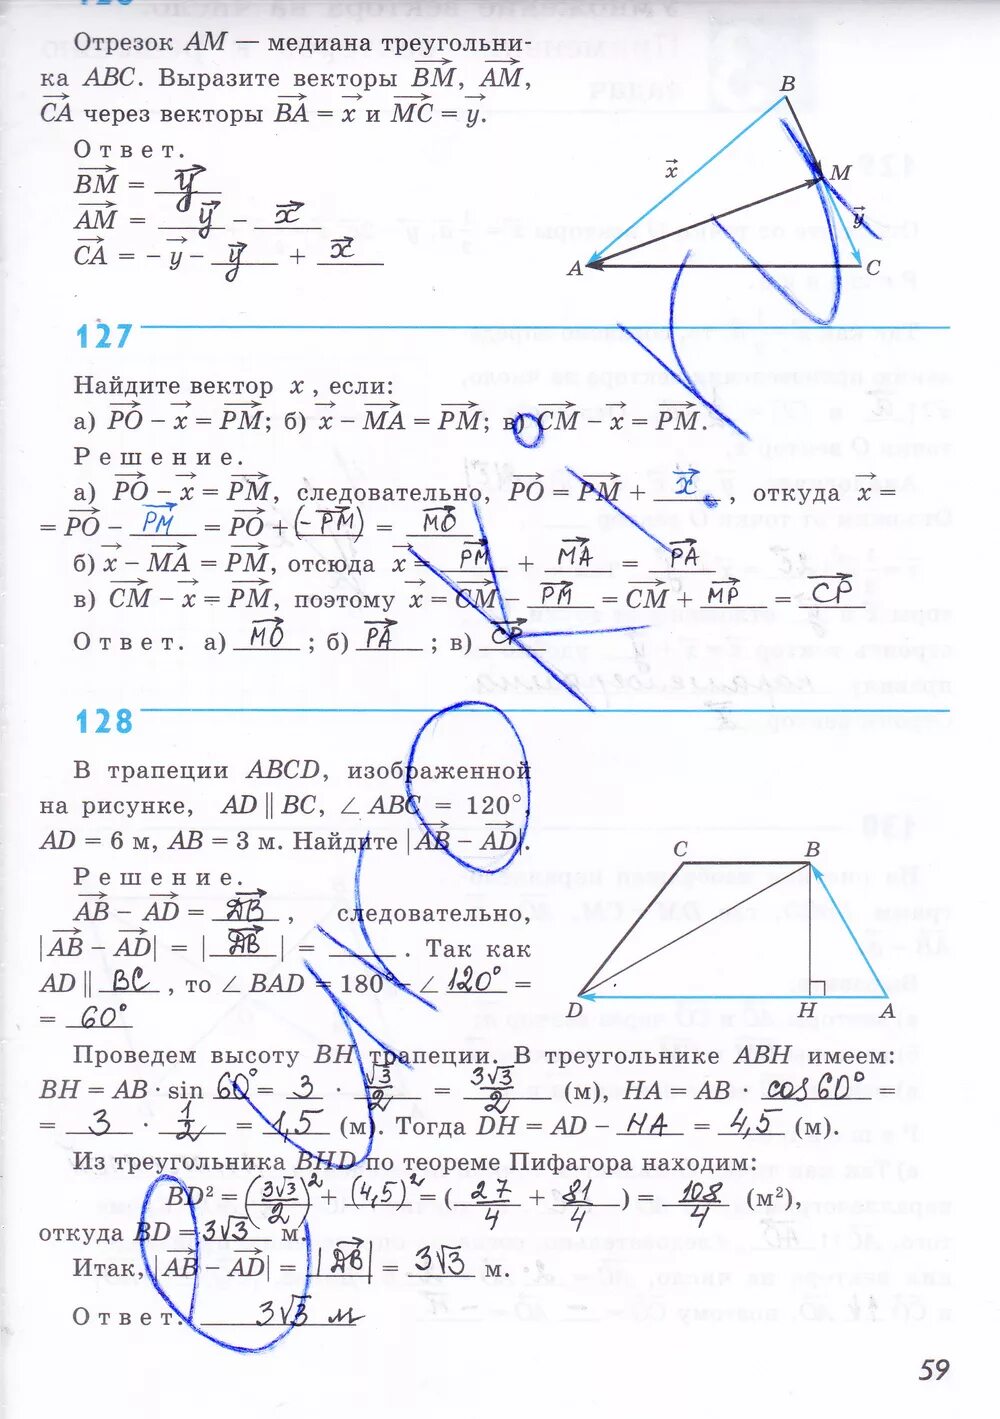 126
Отрезок AM — медиана треугольни-
ка ABC. Выразите векторы BM, AM,
CA через векторы BA = x и MC = y.
Ответ.
BM = y
AM = y − x
CA = − y − y + x
B
x
M
y
A
C
127
Найдите вектор x , если:
а) PO − x = PM; б) x − MA = PM; в) CM − x = PM.
Решение.
а) PO − x = PM, следовательно, PO = PM + x , откуда x =
= PO − PM = PO + (− PM) = MO
б) x − MA = PM, отсюда x = PM + MA = PA
в) CM − x = PM, поэтому x = CM − PM = CM + MP = CP
Ответ. а) MO ; б) PA ; в) CP
128
В трапеции ABCD, изображенной
на рисунке, AD || BC, ∠ ABC = 120°,
AD = 6 м, AB = 3 м. Найдите |AB − AD|.
Решение.
AB − AD = DB , следовательно,
|AB − AD| = | DB | = ____ . Так как
AD || BC , то ∠ BAD = 180° − ∠ 120° =
= 60°
C
B
D
H
A
Проведем высоту BH трапеции. В треугольнике ABH имеем:
BH = AB · sin 60° = 3 · √3/2 = 3√3/2 (м), HA = AB · cos60°
= 3 · 1/2 = 1,5 (м). Тогда DH = AD − HA = 4,5 (м).
Из треугольника BHD по теореме Пифагора находим:
BD² = (3√3/2)² + (4,5)² = ( 27/4 + 81/4 ) = 108/4 (м²),
откуда BD = 3√3 м.
Итак, |AB − AD| = |DB| = 3√3 м.
Ответ. 3√3 м
59